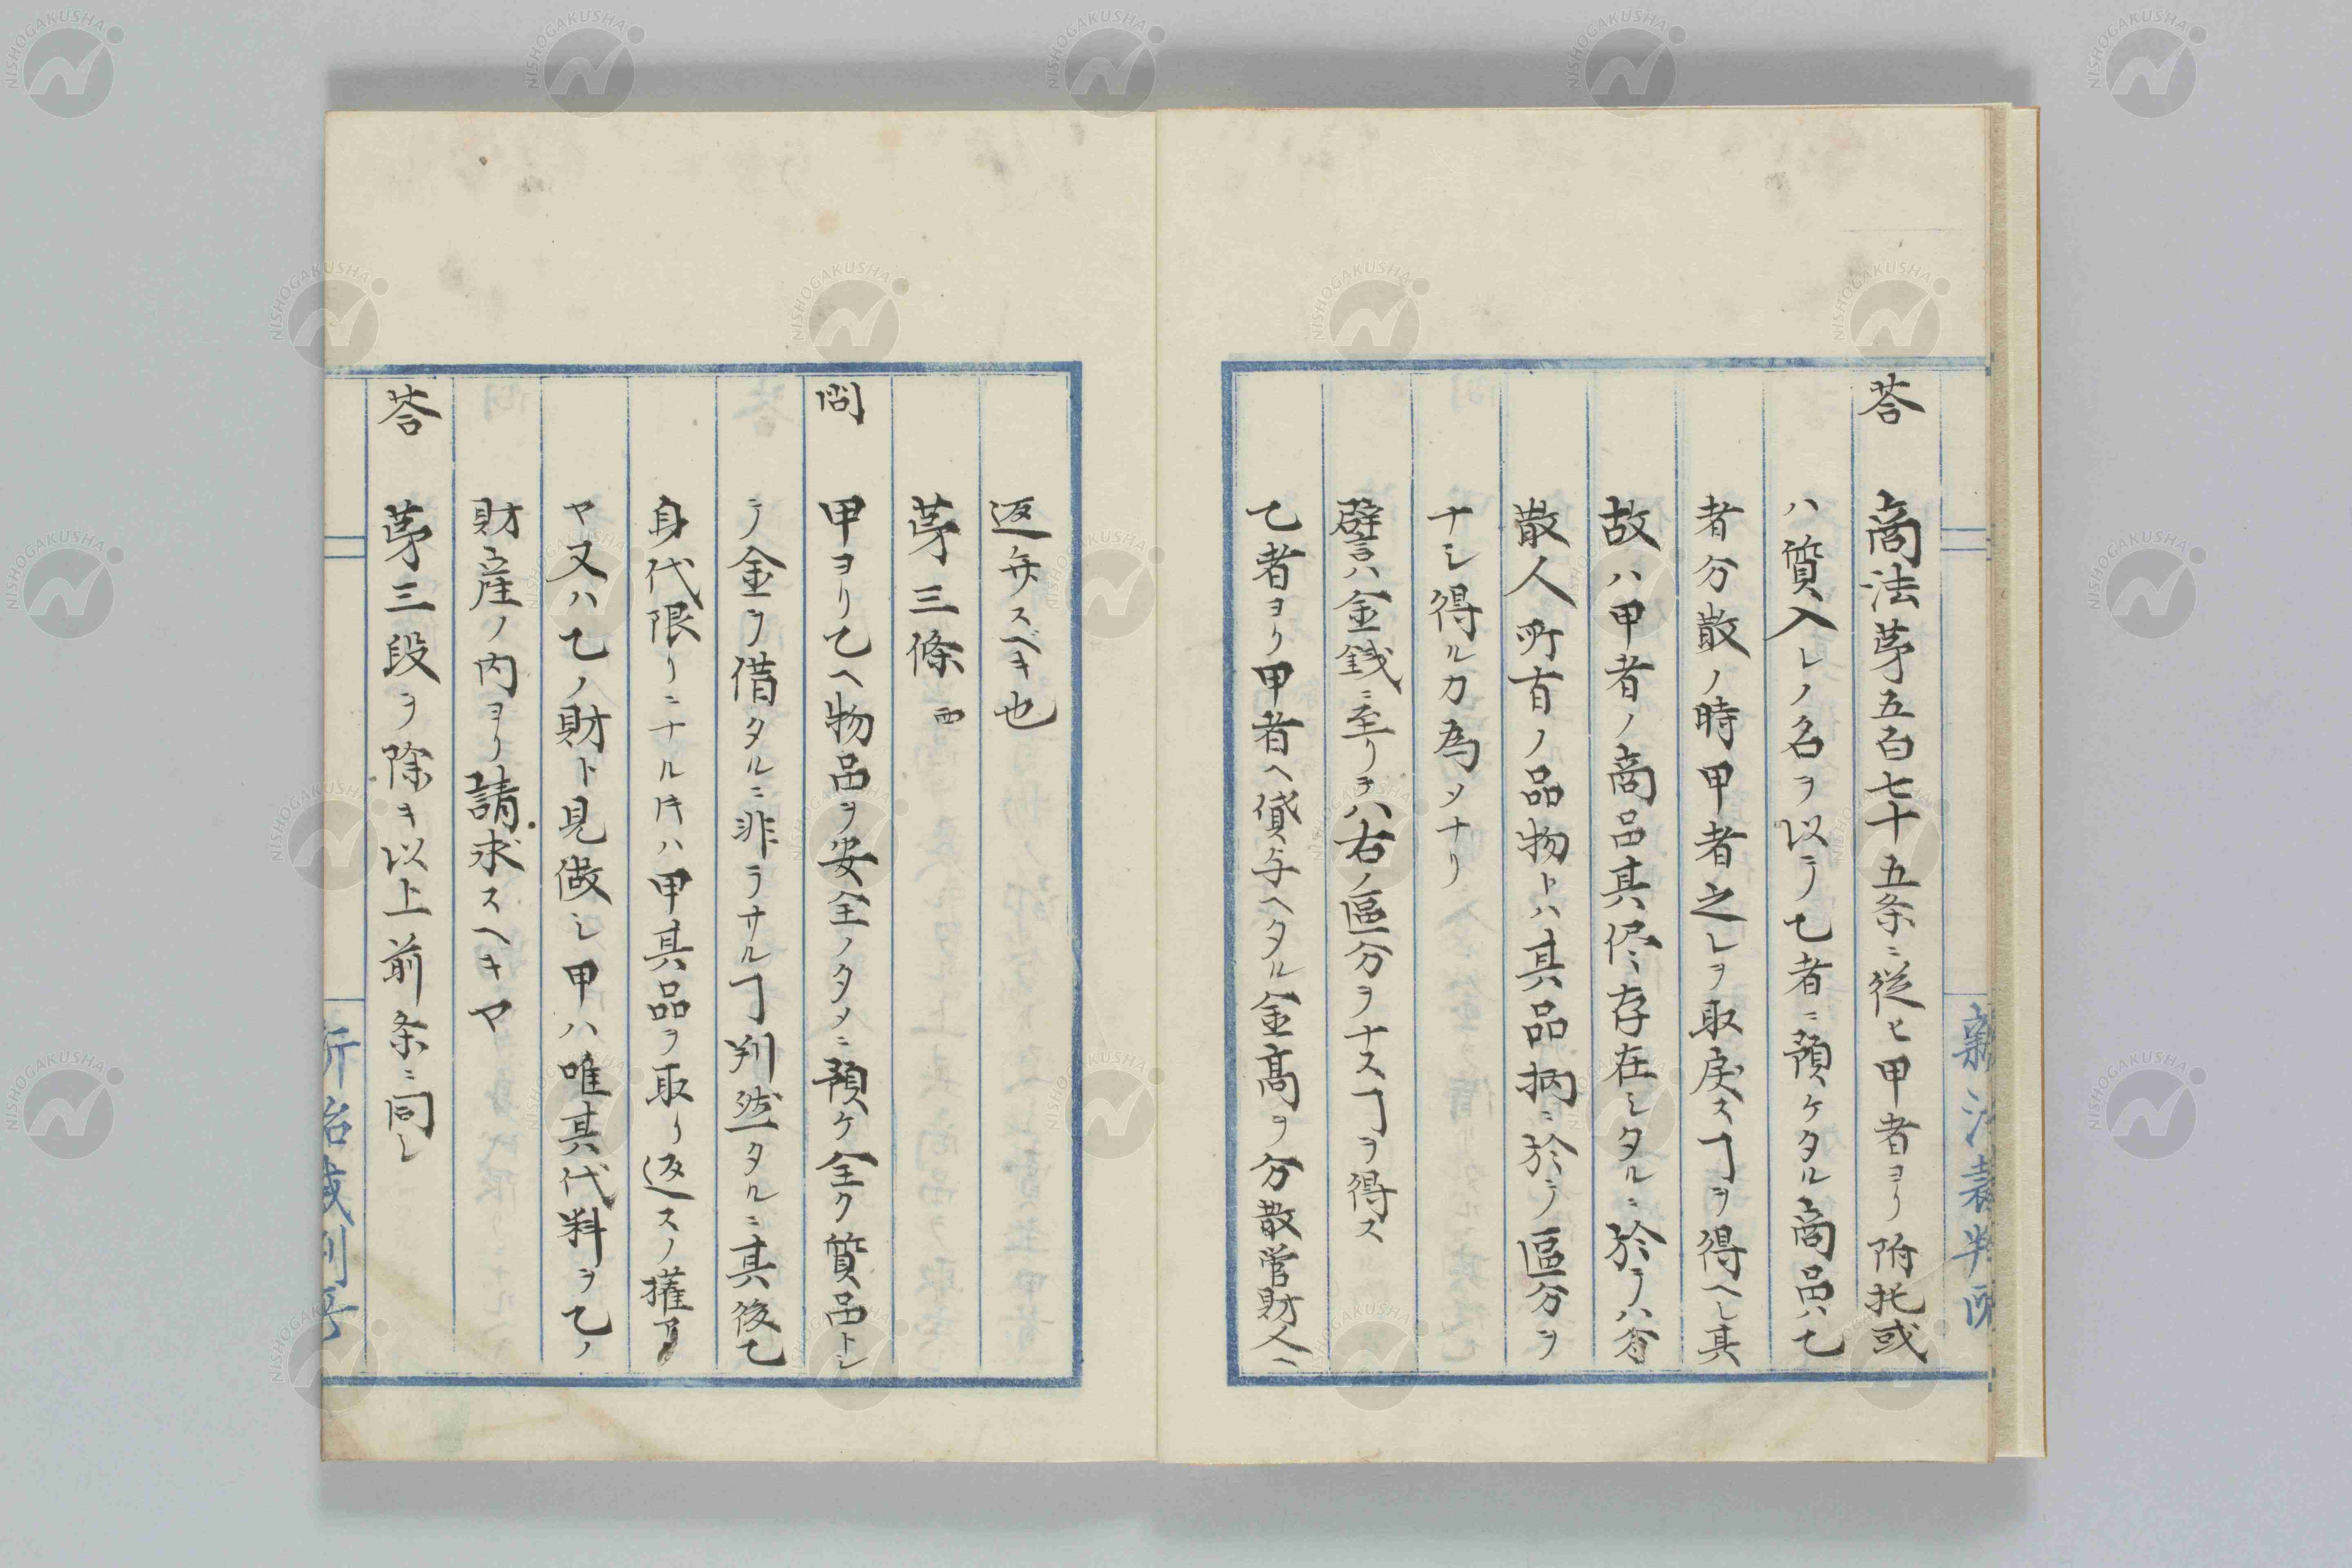 答 商法第五百七十五条ニ従ヒ甲者ヨリ附托或
ハ質入レノ名ヲ以テ乙者ニ預ケタル商品ハ乙
者分散ノ時甲者之レヲ取戻スヿヲ得ヘレ其
故ハ甲者ノ商品其侭ニ存在シタルニ於テハ分
散人所有ノ品物トハ其品柄ニ於テ區分ヲ
ナシ得ルカ為メナリ
譬ハ金銭ニ至リテハ右ノ區分ヲナスヿヲ得ス
乙者ヨリ甲者ヘ貸与ヘタル金高ヲ分散管財人ニ
返弁スベキ也
第三條 西
問 甲ヨリ乙ヘ物品ヲ安全ノタメニ預ケ全ク質品トシ
テ金ヲ借タルニ非ラサルヿ判然タルニ其後乙
身代限リニナル片ハ甲其品ヲ取リ返スノ権アル
ヤ又ハ乙ノ財ト見做シ甲ハ唯其代料ヲ乙ノ
財産ノ内ヨリ請求スヘキヤ
答 第三段ヲ除キ以上前条ニ同シ
新治裁判所
NISHOGAKUSHA